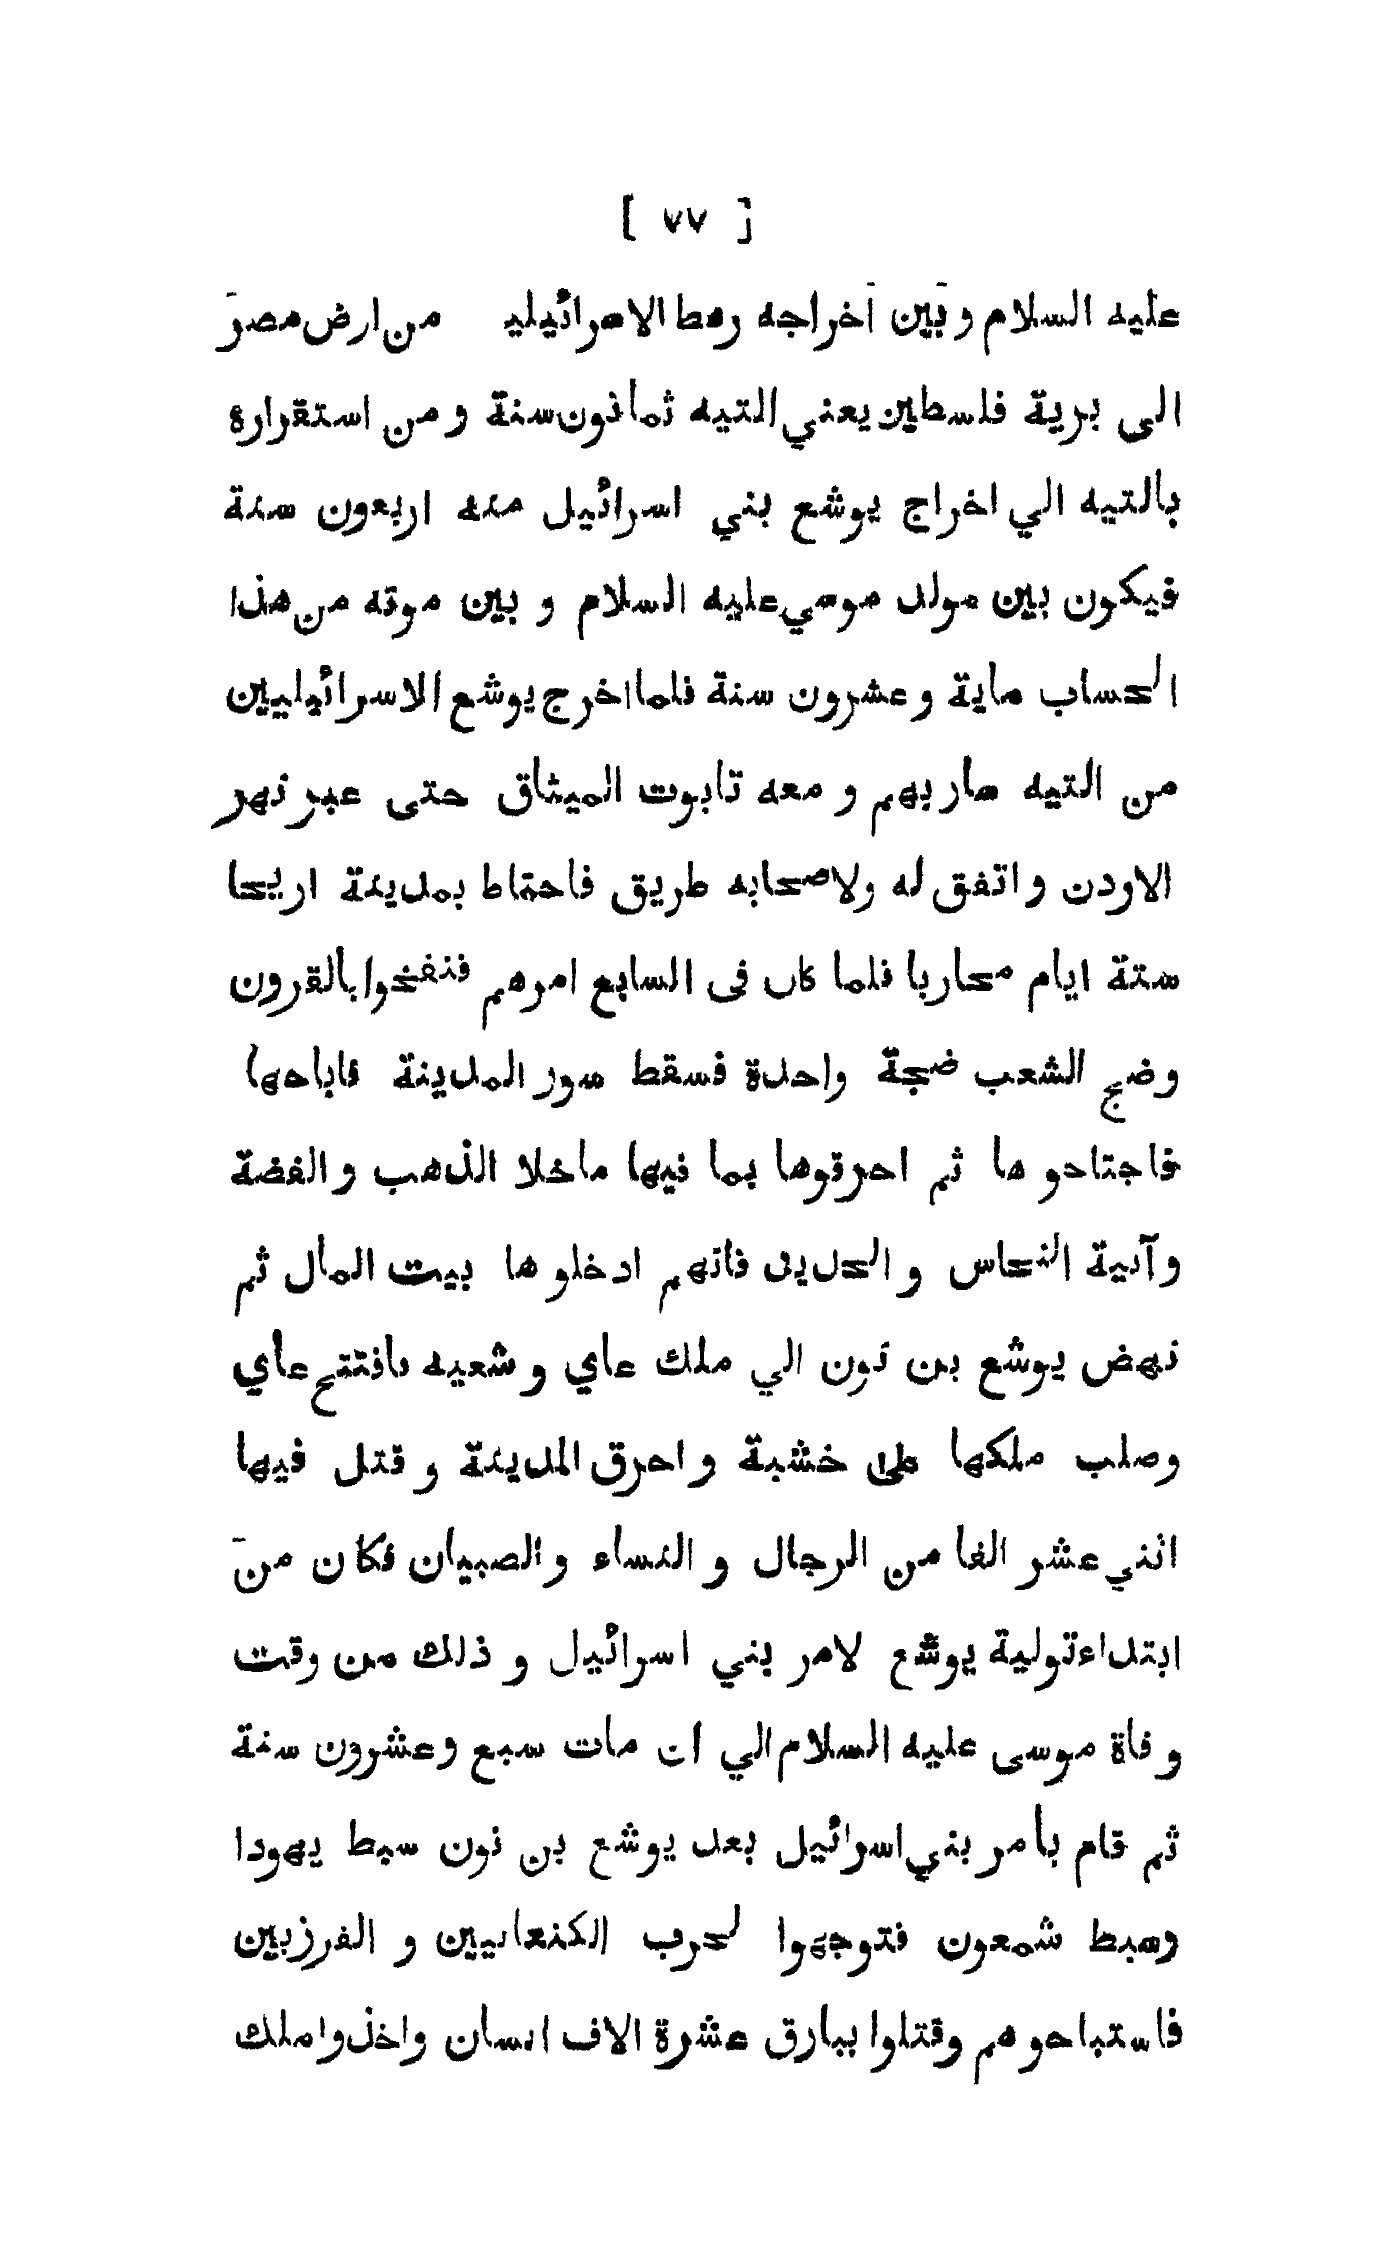 [ ٧٧ ]
عليه السلام و بين اخراجه رهط الاسرائيليـ من ارض مصر
الى برية فلسطين يعني التيه ثمانون سنة و من استقراره
بالتيه الي اخراج يوشع بني اسرائيل منه اربعون سنة
فيكون بين مولد موسي عليه السلام و بين موته من هذا
الحساب ماية و عشرون سنة فلما اخرج يوشع الاسرائيليين
من التيه سار بهم و معه تابوت الميثاق حتى عبر نهر
الاردن و اتفق له ولاصحابه طريق فاحتاط بمدينة اريحا
ستة ايام محاربا فلما كان فى السابع امرهم فنفخوا بالقرون
وضج الشعب ضجة واحدة فسقط سور المدينة فاباحها
فاجتاحو ها ثم احرقوها بما فيها ماخلا الذهب و الفضة
وآنية النحاس و الحديد فانهم ادخلو ها بيت المال ثم
نهض يوشع بن نون الي ملك عاي و شعبه فافتتح عاي
وصلب ملكها على خشبة و احرق المدينة و قتل فيها
اثني عشر الفا من الرجال و النساء و الصبيان فكان من
ابتداء تولية يوشع لامر بني اسرائيل و ذلك من وقت
و فاة موسى عليه السلام الي ان مات سبع وعشرون سنة
ثم قام بأمر بني اسرائيل بعد يوشع بن نون سبط يهودا
وسبط شمعون فتوجهوا لحرب الكنعانيين و الفرزيين
فاستباحو هم وقتلوا ببازق عشرة الاف انسان واخذوا ملك